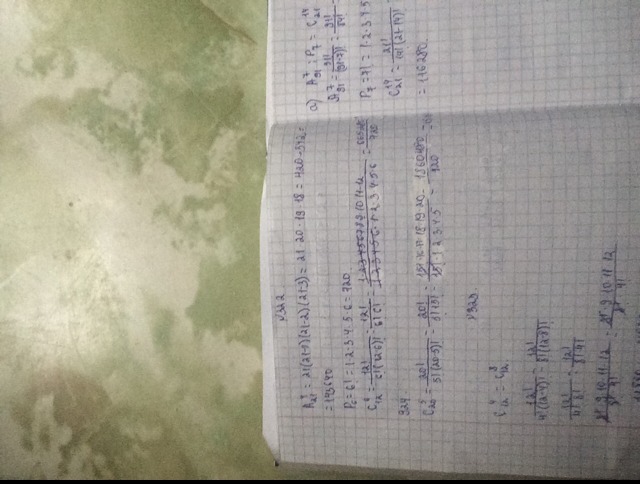 №322
A⁴₂₁ = 21(21-1)(21-2)(21-3) = 21·20·19·18 = 420·342 =
= 143640
P₆ = 6! = 1·2·3·4·5·6 = 720
C⁶₁₂ = 12!/6!(12-6)! = 12!/6!6! = 1·2·3·4·5·6·7·8·9·10·11·12/1·2·3·4·5·6·1·2·3·4·5·6 =
324
C⁵₂₀ = 20!/5!(20-5)! = 20!/5!15! = 15!·16·17·18·19·20/15!·1·2·3·4·5 = 1860480/120 =
№323
C⁴₁₂ = C⁸₁₂
12!/4!(12-4)! = 12!/8!(12-8)!
12!/4!8! = 12!/8!4!
8!·9·10·11·12/8!·4! = 8!·9·10·11·12/8!·4!
а) A⁷₂₁ : P₇ = C¹⁴₂₁
A⁷₂₁ = 21!/(21-7)! = 21!/14!
P₇ = 7! = 1·2·3·4·5
C¹⁴₂₁ = 21!/14!(21-14)!
= 116280